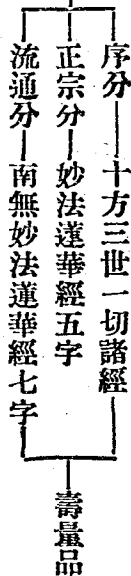 序分━━十方三世一切諸經
正宗分━妙法蓮華經五字
流通分━南無妙法蓮華經七字
壽量品